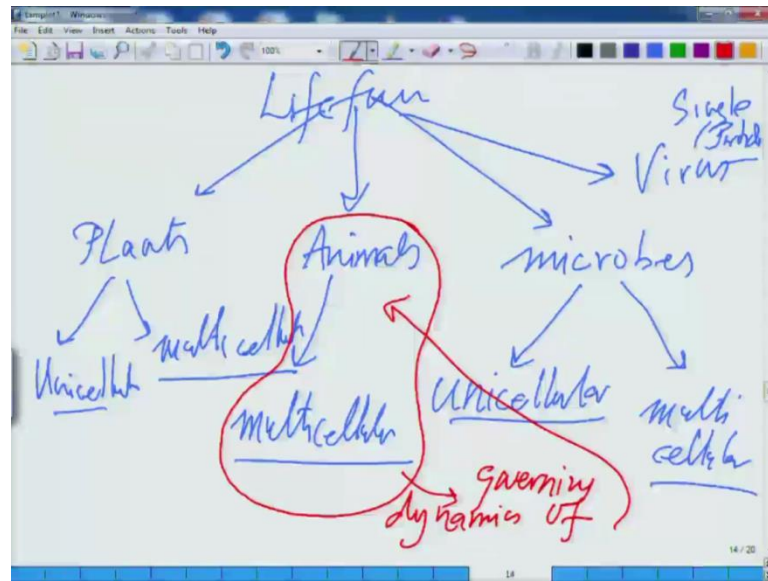 File Edit View Insert Actions Tools Help
100%
Life form
Single
Virus
Plants
Animals
microbes
Unicellular
multicellular
multicellular
Unicellular
multi
cellular
governing
dynamics of
14 / 20
14